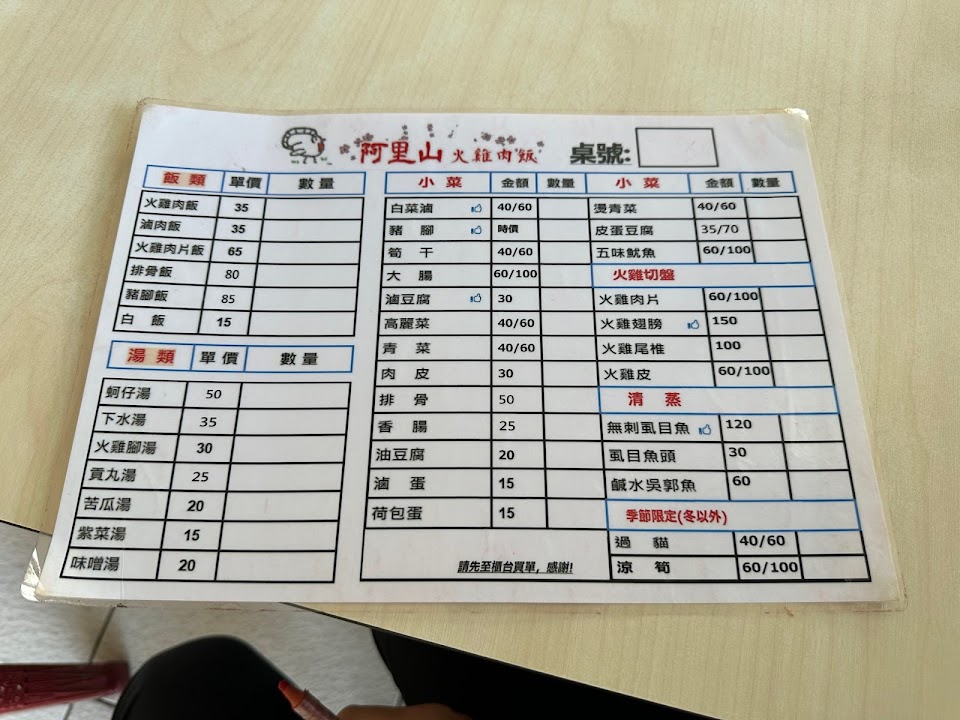 阿里山 火雞肉飯 桌號:
飯類 單價 數量
火雞肉飯 35
滷肉飯 35
火雞肉片飯 65
排骨飯 80
豬腳飯 85
白飯 15
湯類 單價 數量
蚵仔湯 50
下水湯 35
火雞腳湯 30
貢丸湯 25
苦瓜湯 20
紫菜湯 15
味噌湯 20
小菜 金額 數量
白菜滷 40/60
豬腳 時價
筍干 40/60
大腸 60/100
滷豆腐 30
高麗菜 40/60
青菜 40/60
肉皮 30
排骨 50
香腸 25
油豆腐 20
滷蛋 15
荷包蛋 15
請先至櫃台買單,感謝!
小菜 金額 數量
燙青菜 40/60
皮蛋豆腐 35/70
五味魷魚 60/100
火雞切盤
火雞肉片 60/100
火雞翅膀 150
火雞尾椎 100
火雞皮 60/100
清蒸
無刺虱目魚 120
虱目魚頭 30
鹹水吳郭魚 60
季節限定(冬以外)
過貓 40/60
涼筍 60/100